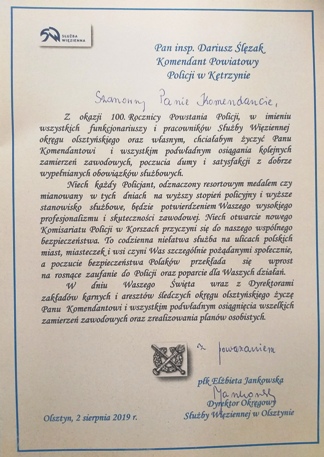 SŁUŻBA
WIĘZIENNA
Pan insp. Dariusz Ślęzak
Komendant Powiatowy
Policji w Kętrzynie
Szanowny Panie Komendancie,
Z okazji 100. Rocznicy Powstania Policji, w imieniu
wszystkich funkcjonariuszy i pracowników Służby Więziennej
okręgu olsztyńskiego oraz własnym, chciałabym życzyć Panu
Komendantowi i wszystkim podwładnym osiągania kolejnych
zamierzeń zawodowych, poczucia dumy i satysfakcji z dobrze
wypełnianych obowiązków służbowych.
Niech każdy Policjant, odznaczony resortowym medalem czy
mianowany w tych dniach na wyższy stopień policyjny i wyższe
stanowisko służbowe, będzie potwierdzeniem Waszego wysokiego
profesjonalizmu i skuteczności zawodowej. Niech otwarcie nowego
Komisariatu Policji w Korszach przyczyni się do naszego wspólnego
bezpieczeństwa. To codzienna niełatwa służba na ulicach polskich
miast, miasteczek i wsi czyni Was szczególnie pożądanymi społecznie,
a poczucie bezpieczeństwa Polaków przekłada się wprost
na rosnące zaufanie do Policji oraz poparcie dla Waszych działań.
W dniu Waszego Święta wraz z Dyrektorami
zakładów karnych i aresztów śledczych okręgu olsztyńskiego życzę
Panu Komendantowi i wszystkim podwładnym osiągnięcia wszelkich
zamierzeń zawodowych oraz zrealizowania planów osobistych.
z poważaniem
płk Elżbieta Jankowska
Jankowsk
Dyrektor Okręgowy
Olsztyn, 2 sierpnia 2019 r. Służby Więziennej w Olsztynie